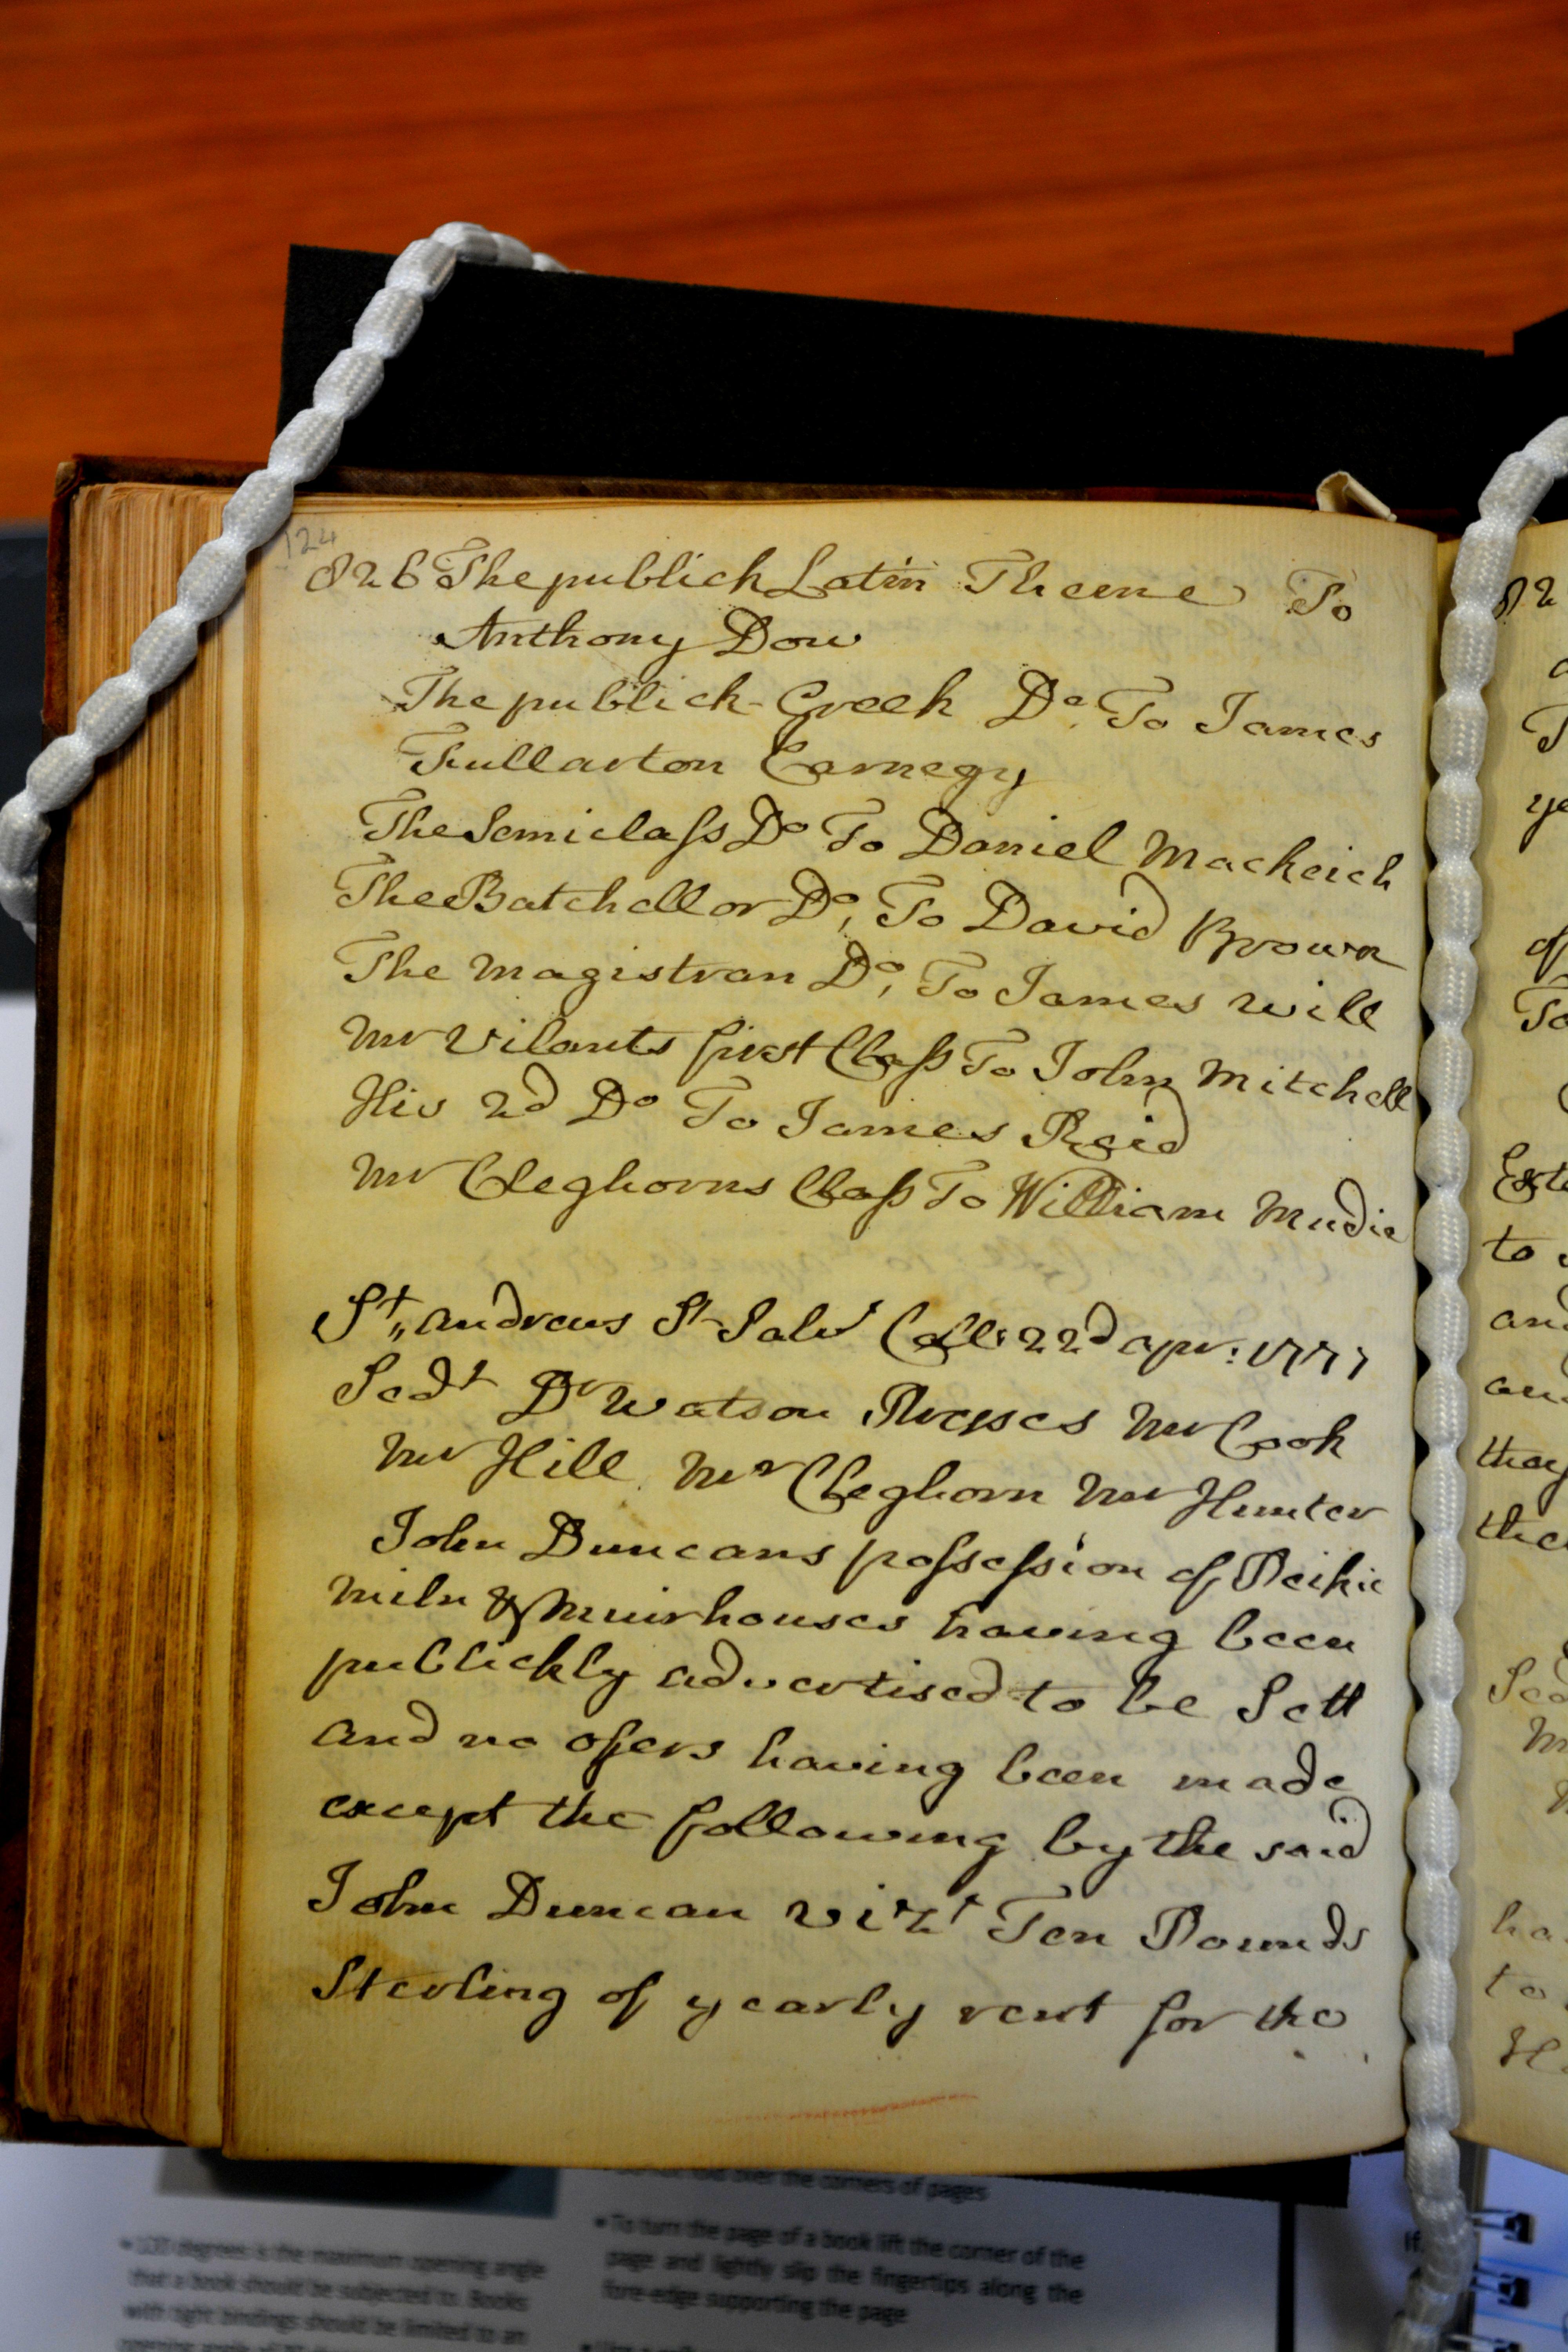 124
826 The publick Latin Theme To
Anthony Dow
The publick Greek Do. To James
Fullarton Carnegy
The Semiclass Do To Daniel Mackeich
The Batchellor Do, To David Brown
The Magistran Do, To James Will
Mr Vilants first Class To John Mitchell
His 2d Do To James Reid
Mr Cleghorns Class To William Mudie
St,, Andrews St Salrs Coll: 22d apr: 1777
Sedt Dr Watson Præses Mr Cook
Mr Hill Mr Cleghorn Mr Hunter
John Duncans possession of Peikie
miln & Muirhouses having been
publickly advertised to be Sett
and no offers having been made
except the following by the said
John Duncan vizt Ten Pounds
Sterling of yearly rent for the
82
to
and
they
over the corners of pages
• To turn the page of a book lift the corner of the
page and lightly slip the fingertips along the
fore-edge supporting the page
degrees is the maximum opening angle
that a book should be subjected to. Books
with tight bindings should be limited to an